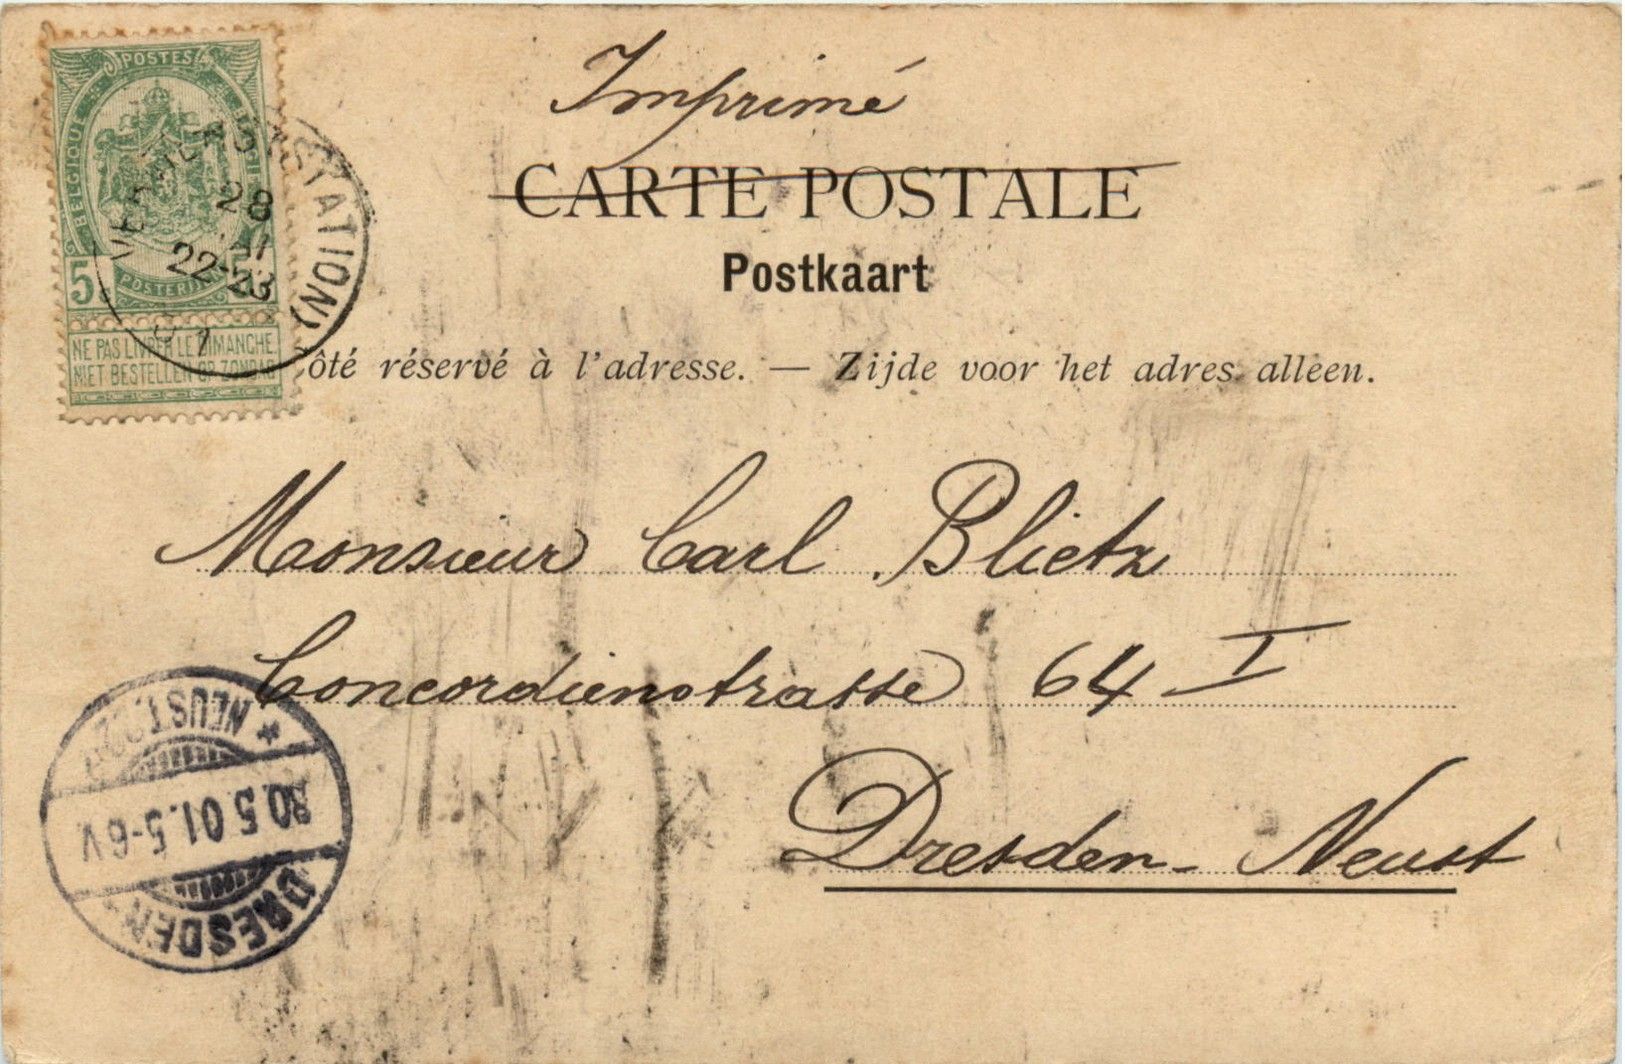 POSTES
BELGIQUE
5
POSTERIJEN
NE PAS LIVRER LE DIMANCHE
NIET BESTELLEN OP ZONDAG
VERVIERS (STATION)
28
22-23
Imprimé
CARTE POSTALE
Postkaart
ôté réservé à l'adresse. — Zijde voor het adres alleen.
Monsieur Carl Blietz
Concordienstrasse 64 I
Dresden-Neust
DRESDEN
30.5.01.5-6V
* NEUST.